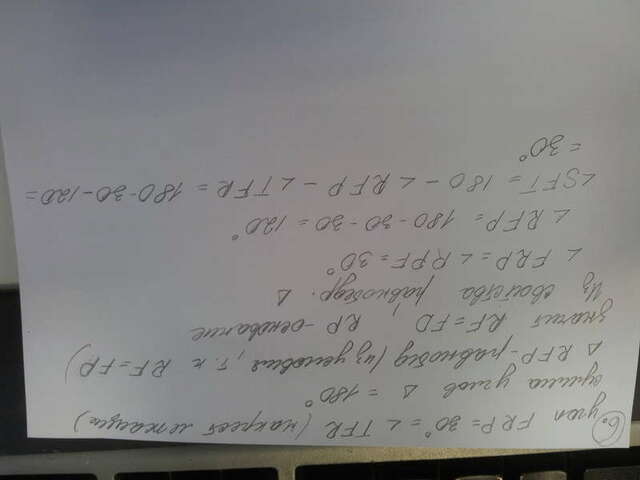 6. угол FRP = 30° = ∠ TFR (накрест лежащие)
сумма углов Δ = 180°
Δ RFP - равнобед (из условия, т.к RF = FP)
значит RF = FD RP - основание
Из свойства равнобедр. Δ
∠ FRP = ∠ RPF = 30°
∠ RFP = 180 - 30 - 30 = 120°
∠ SFT = 180 - ∠ RFP - ∠ TFR = 180 - 30 - 120 =
= 30°